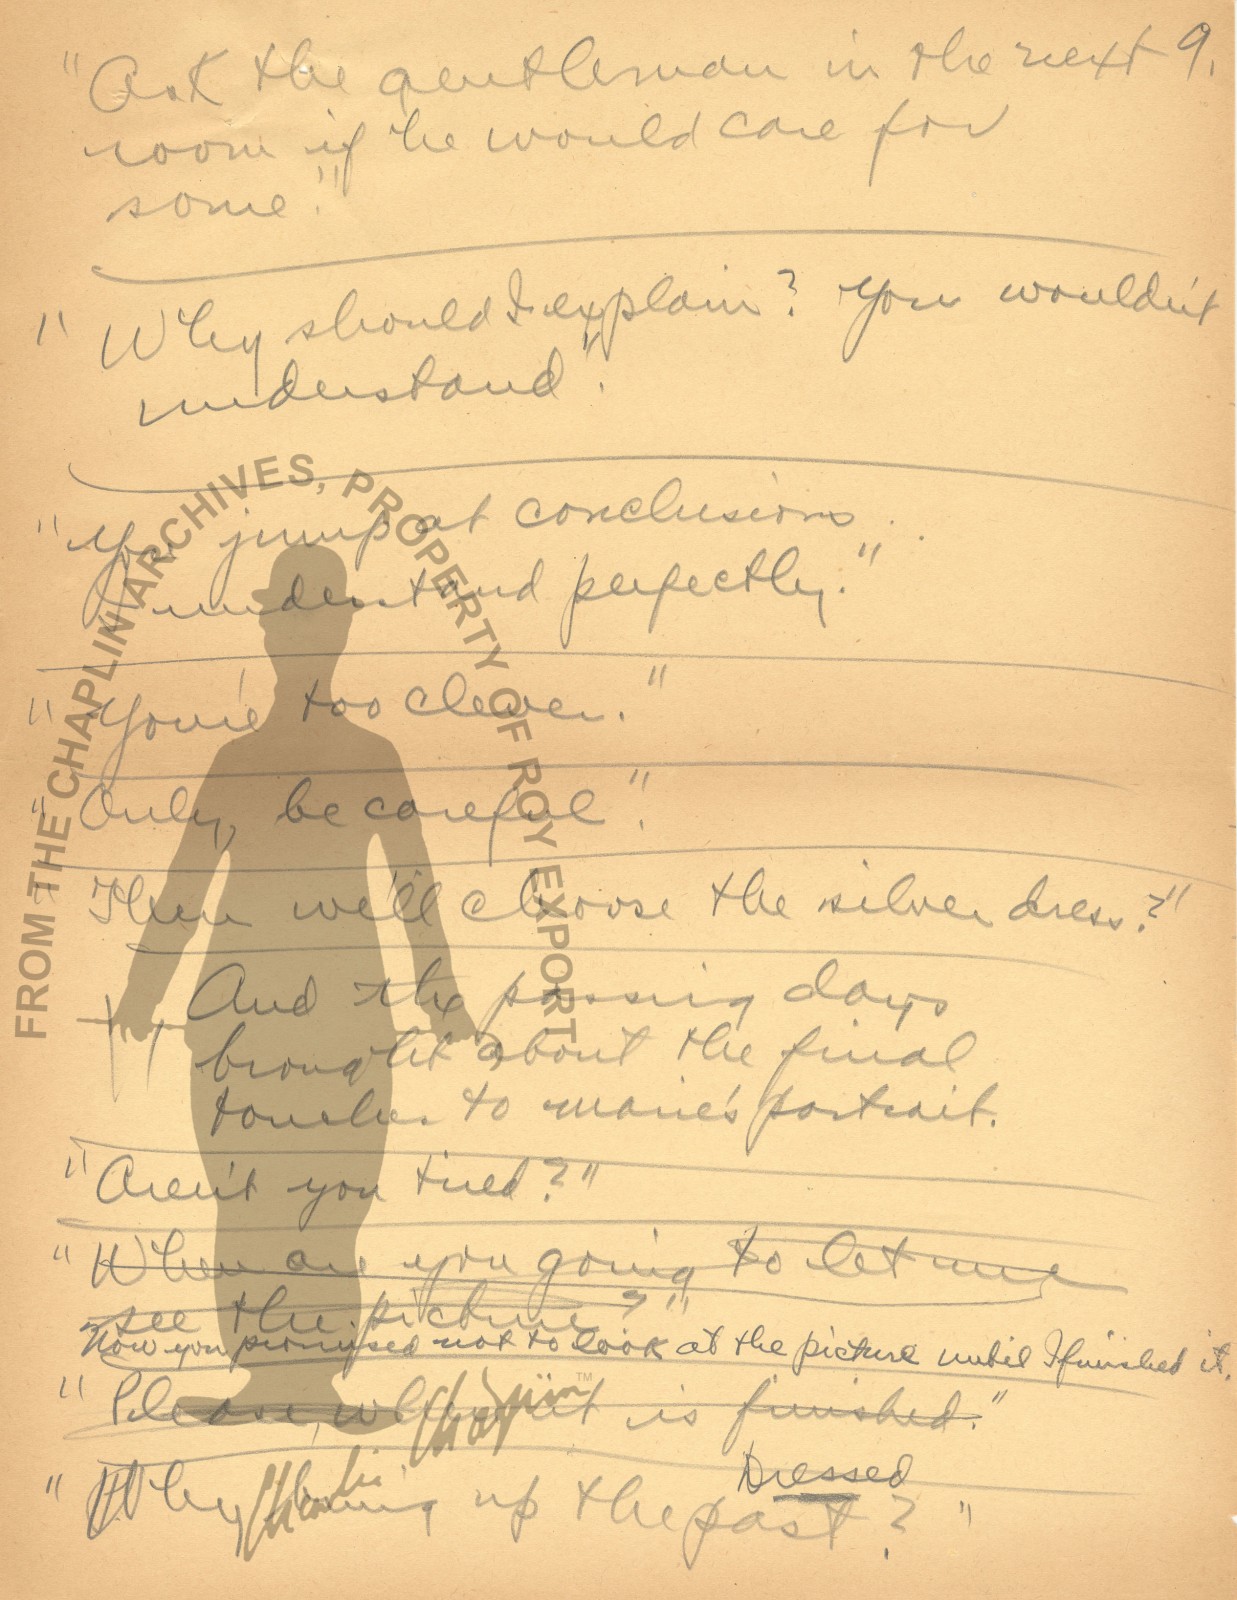 "Ask the gentleman in the next 9.
room if he would care for
some."
"Why should I explain? You wouldn't
understand".
"You jump at conclusions.
I understand perfectly."
"You're too clever."
"Only, be careful".
"Then we'll choose the silver dress?"
And the passing days
brought about the final
touches to marie's portrait.
"Aren't you tired?"
"When are you going to let me
see the picture?"
"Now you promised not to look at the picture until I finished it.
"Please, when it is finished."
Dressed
"Why bring up the past?"
FROM THE CHAPLIN ARCHIVES, PROPERTY OF ROY EXPORT
Charlie Chaplin™